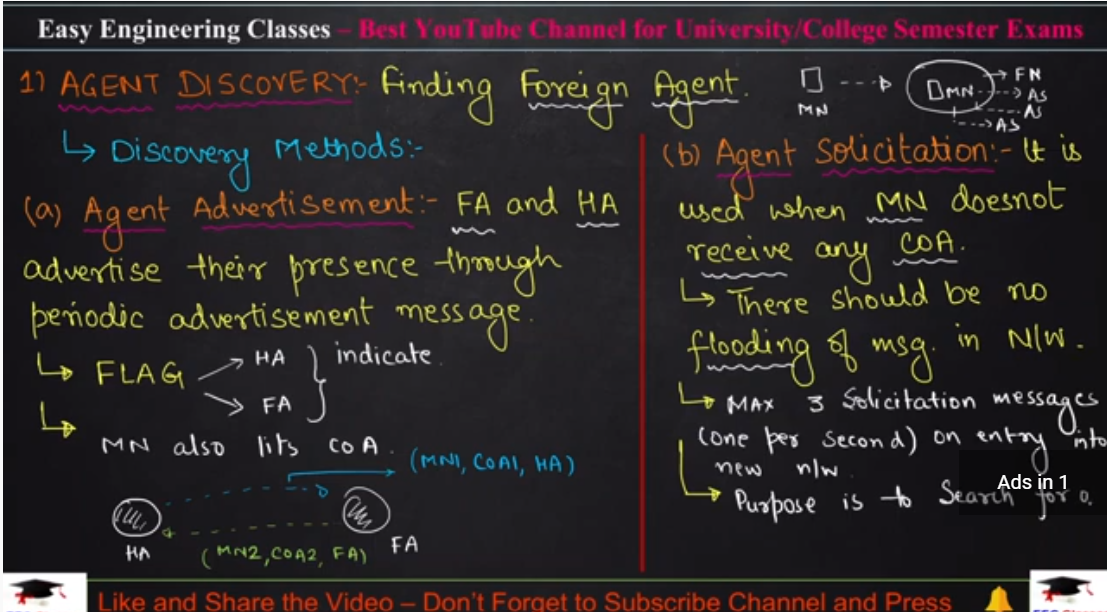 Easy Engineering Classes – Best YouTube Channel for University/College Semester Exams
1) AGENT DISCOVERY:- Finding Foreign Agent.
MN
MN
FN
AS
AS
AS
↳ Discovery Methods:-
(a) Agent Advertisement:- FA and HA
advertise their presence through
periodic advertisement message.
↳ FLAG
HA
FA
indicate.
MN also lits COA.
(MN1, COA1, HA)
HA
(MN2, COA2, FA)
FA
(b) Agent Solicitation:- It is
used when MN doesnot
receive any COA.
↳ There should be no
flooding of msg. in N/W.
↳ MAX 3 Solicitation messages
(one per second) on entry into
new n/w.
Ads in 1
↳ Purpose is to Search for
Like and Share the Video – Don't Forget to Subscribe Channel and Press